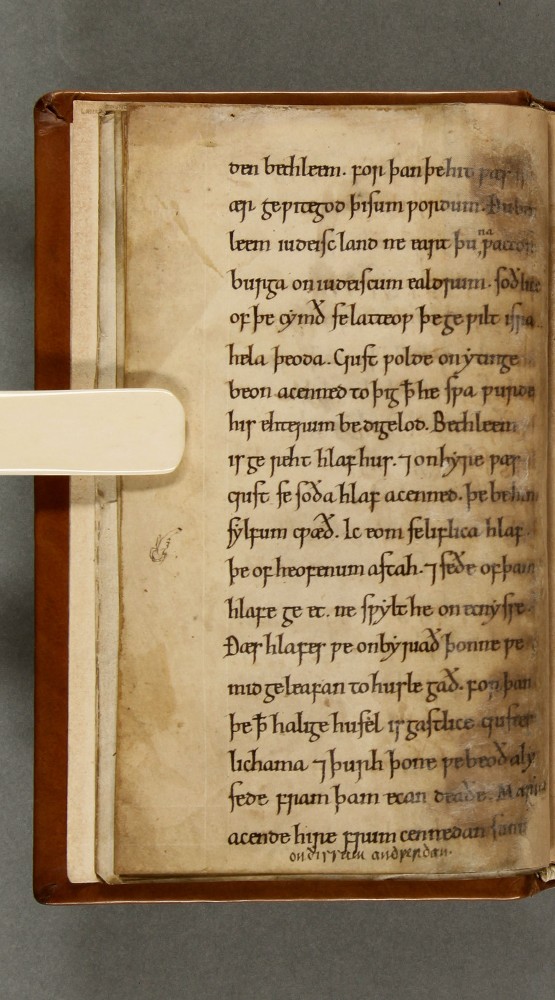 den bethleem. for þan þe hit wæs
ær gewitegod þisum wordum. Đu beth
leem iudeisc land ne eart þu na waccost
burga on iudeiscum ealdrum. soðlice
of þe cymð se latteow þe ge wilt isra
hela þeoda. Crist wolde on ytinge
beon acenned to þig þ̄ he swa wurde
his ehterum bedigelod. Bethleem
is ge reht hlaf hus. ⁊ on hyre wæs
crist se soða hlaf acenned. þe be him
sylfum cwæð. Ic eom se liflica hlaf
þe of heofenum astah. ⁊ se ðe of þam
hlafe ge et. ne swylt he on ecnysse.
Ðæs hlafes we onbyriað þonne we
mid geleafan to husle gað. for þan
þe þ̄ halige husel is gastlice cristes
lichama ⁊ þurh þone we beoð aly
sede fram þam ecan deaðe. Maria
acende hire frum cennedan sunu
on ðissum andwerdan.